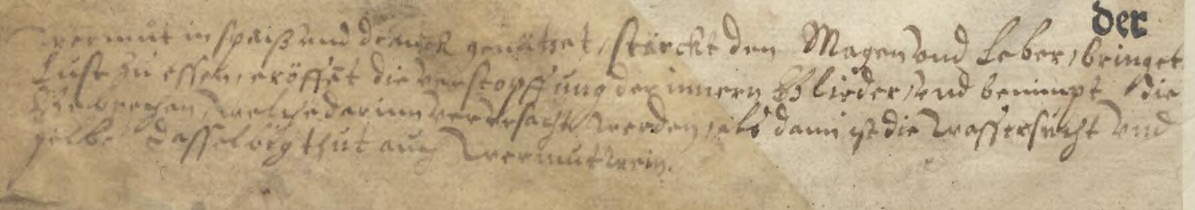 der
Wermut in speiß und dranck genützet, stärckt den Magen und Leber, bringet
Lust zu essen, eröffnet die verstopffung der innern Glieder, und benimpt die
Gebrechen, welche darinn verursacht werden, als dann ist die Wassersucht und
gelbe dasselbig thut auch Wermutwein.